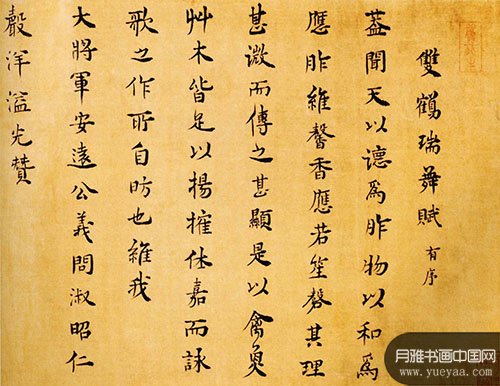 雙鶴瑞舞賦 有序
蓋聞天以德爲胙物以和爲
應胙維馨香應若笙磬其理
甚微而傳之甚顯是以禽魚
艸木皆足以揚搉休嘉而詠
歌之作所自昉也維我
大將軍安遠公義問淑昭仁
聲洋溢光贊
月雅书画中国网
www.yueyaa.com